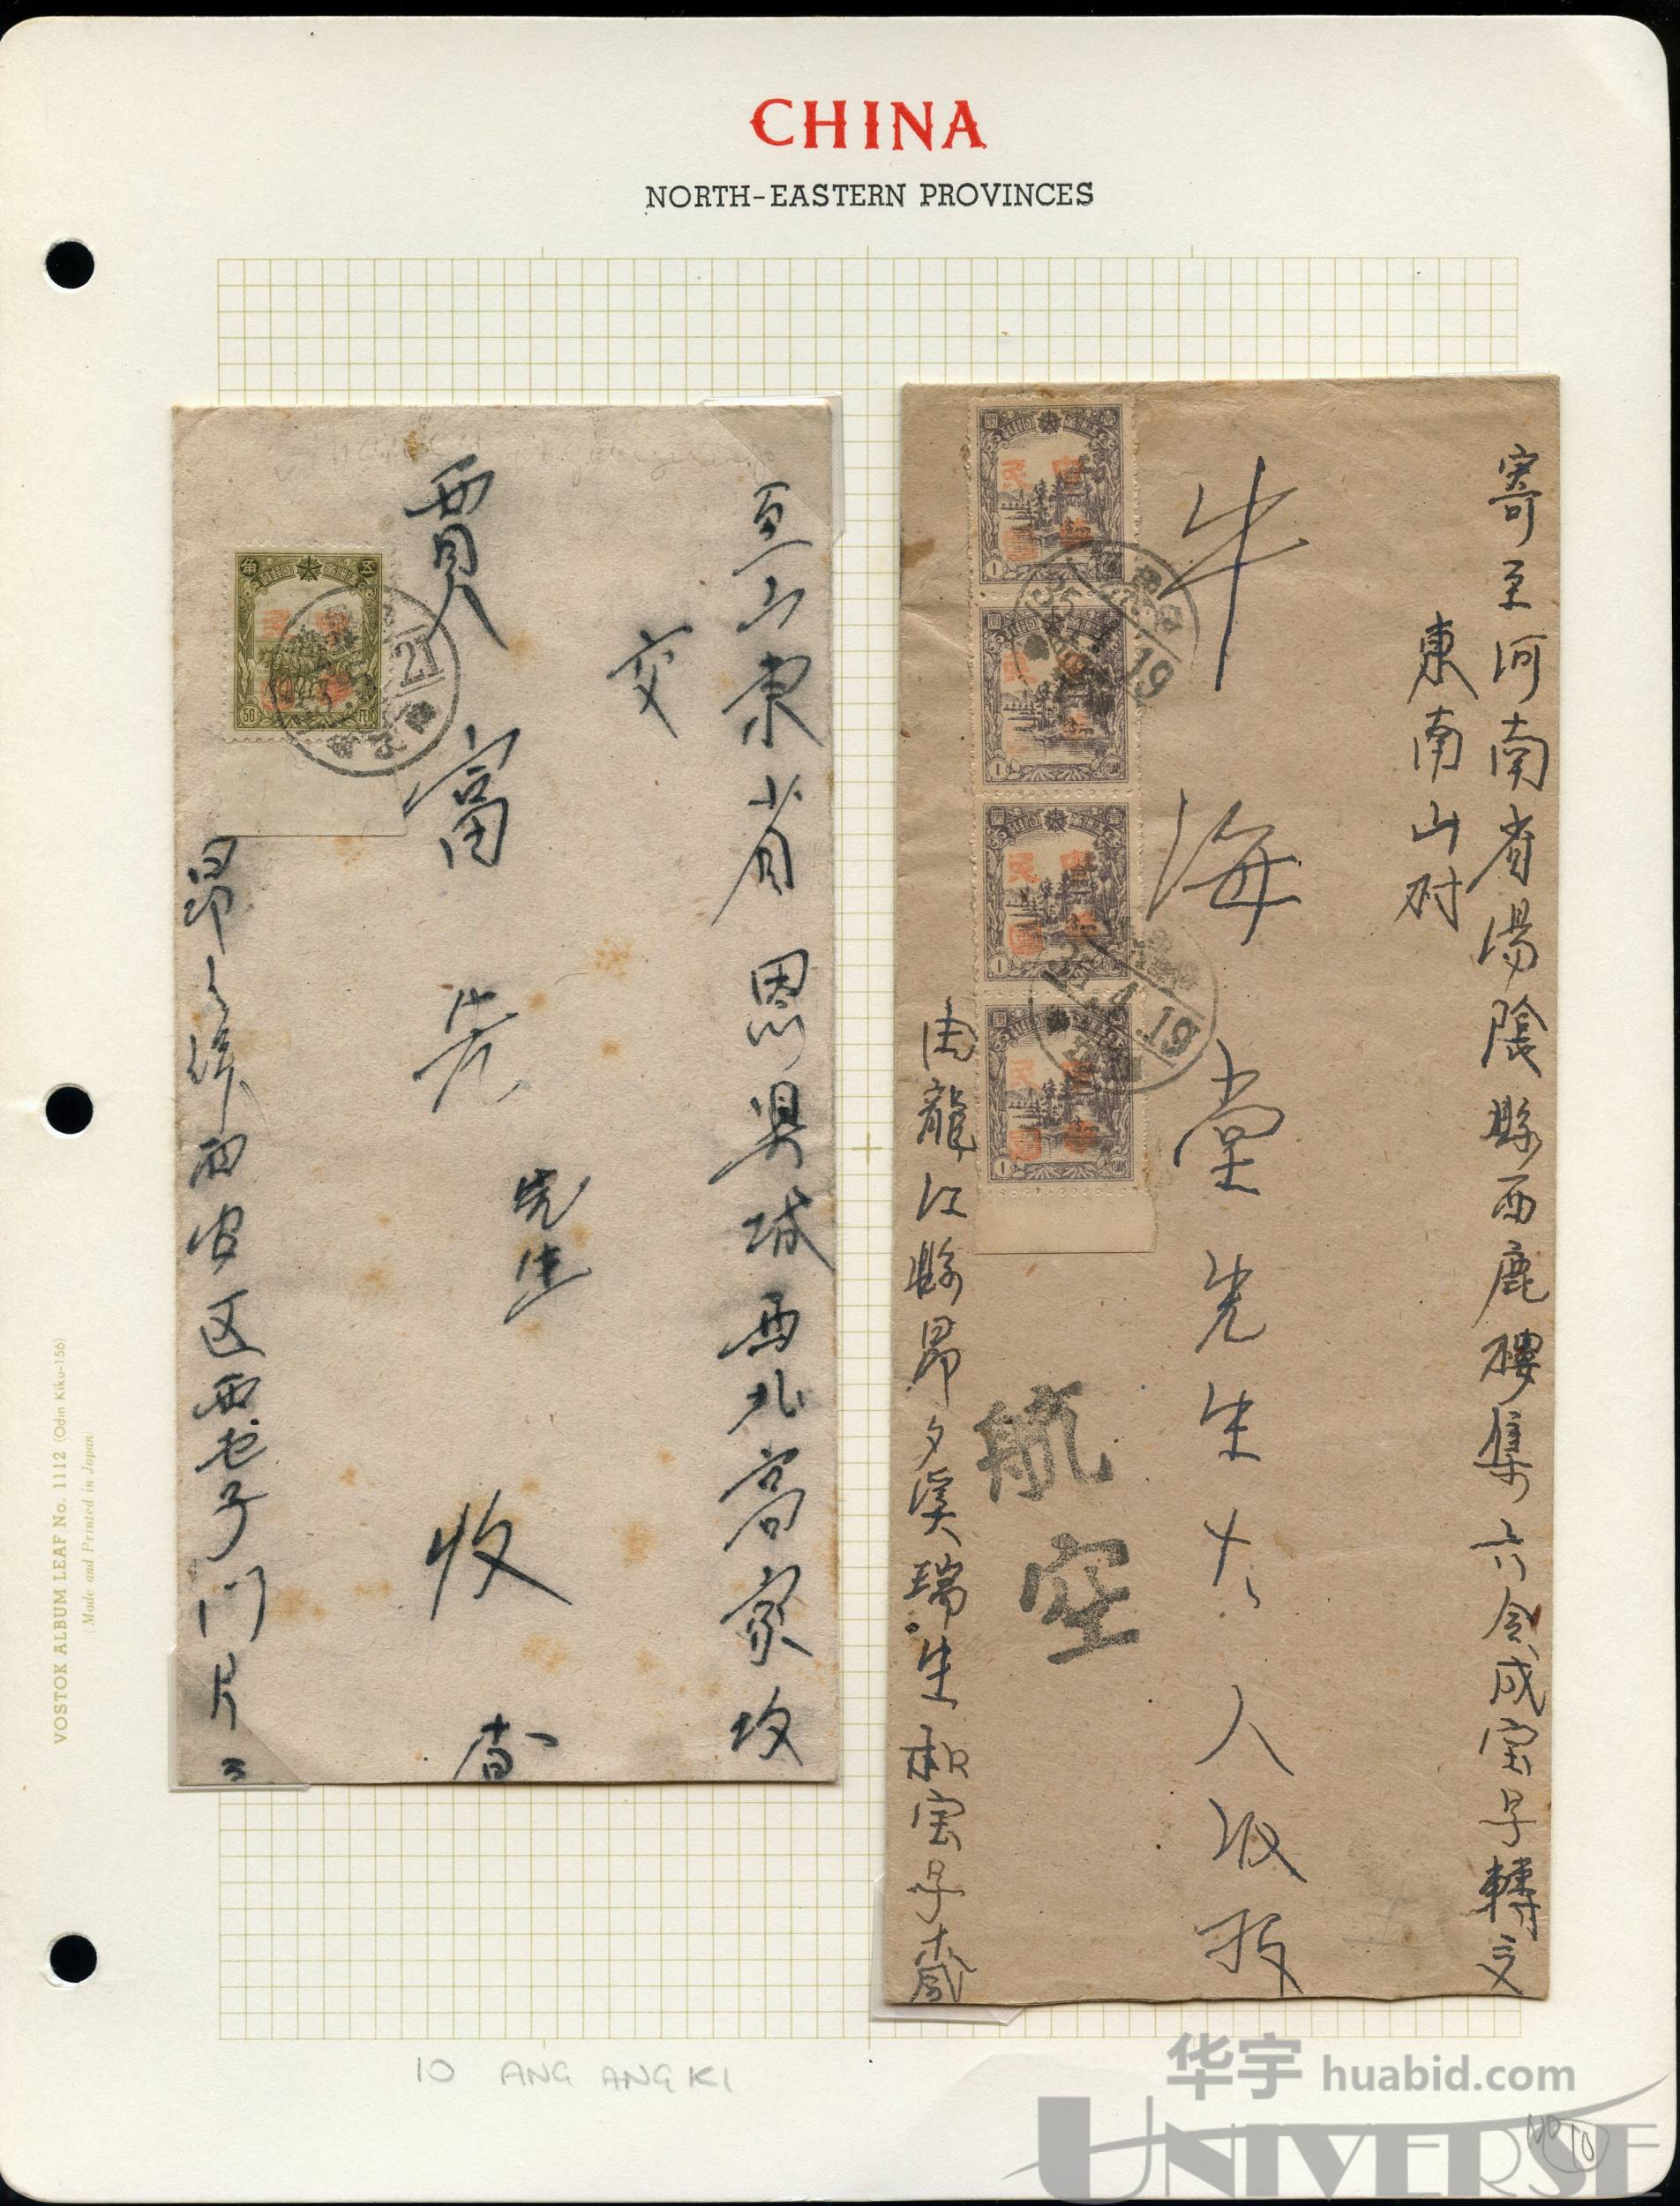 CHINA
NORTH-EASTERN PROVINCES
至山東省恩县城西北高家坟
交
賈富先
先生
收
啓
西官区西屯子门户
寄至河南省湯陰縣西鹿樓集六合成宝号轉交
東南山村
牛海堂先生大人收啟
航空
由龍江縣昂夕溪瑞生
宝号
五角
50
1
1
1
1
21
35
19
4
19
VOSTOK ALBUM LEAF No. 1112 (Odin Kiku-156)
Made and Printed in Japan
10 ANG ANG KI
华宇 huabid.com
UNIVERSE
No 10